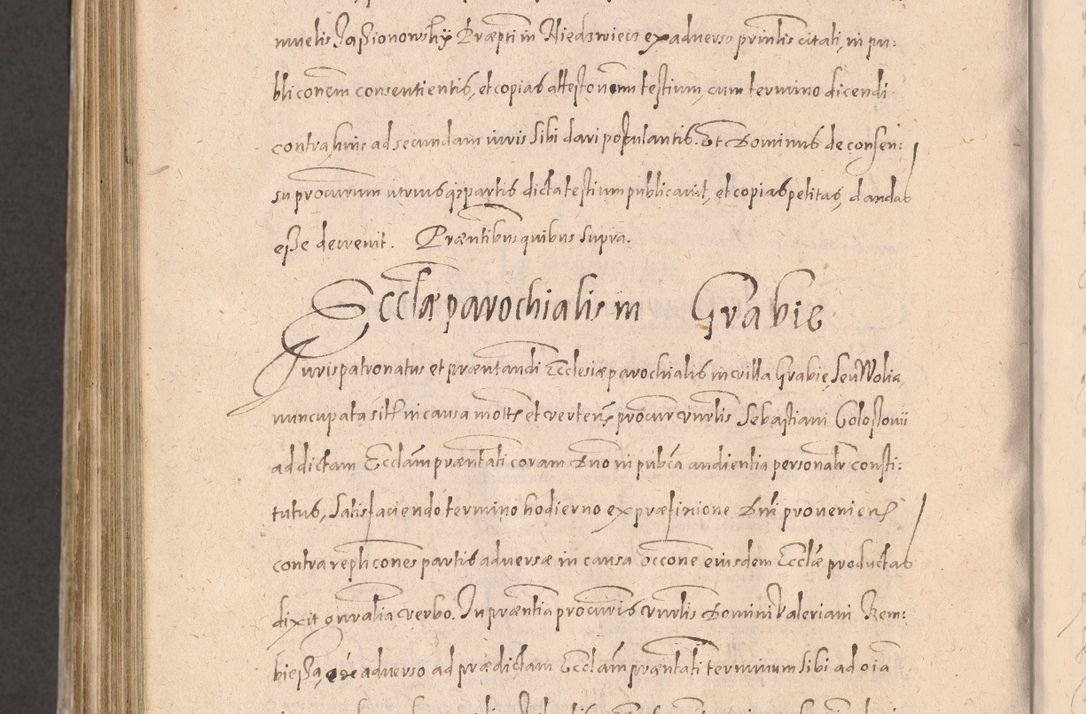 muelis Jaßionowsky Præpti in Niedzwiecz ex adverso printis citati, in pu:
bliconem consentientis, et copias attestonum testium, cum termino dicendi
contra huic ad secundam iuris sibi dari postulantis. Et Dominus de consen:
su procurum utriusq3 partis dicta testium publicavit, et copias petitas, dandas
eße decrevit. Præntibus quibus supra.
Ecclæ parochialis in Grabie
Juris patronatus et præntandi Ecclesiæ parochialis in villa Grabie, seu Wolia,
nuncupata sitæ in causa mota et verten procur vnrlis Sebastiani
ad dictam Ecclam præntati coram Dno in pubca audientia personalr consti:
tutus, Satisfaciendo termino hodierno ex præfinione Dni provenien
contra repliciones partis adversæ in causa occone eiusdem Ecclæ productas
dixit gnralia verbo. In præntia procuris vnrlis Domini Valeriani Rem:
bießa, ex adverso ad prædictam Ecclam præntati terminum sibi ad oia